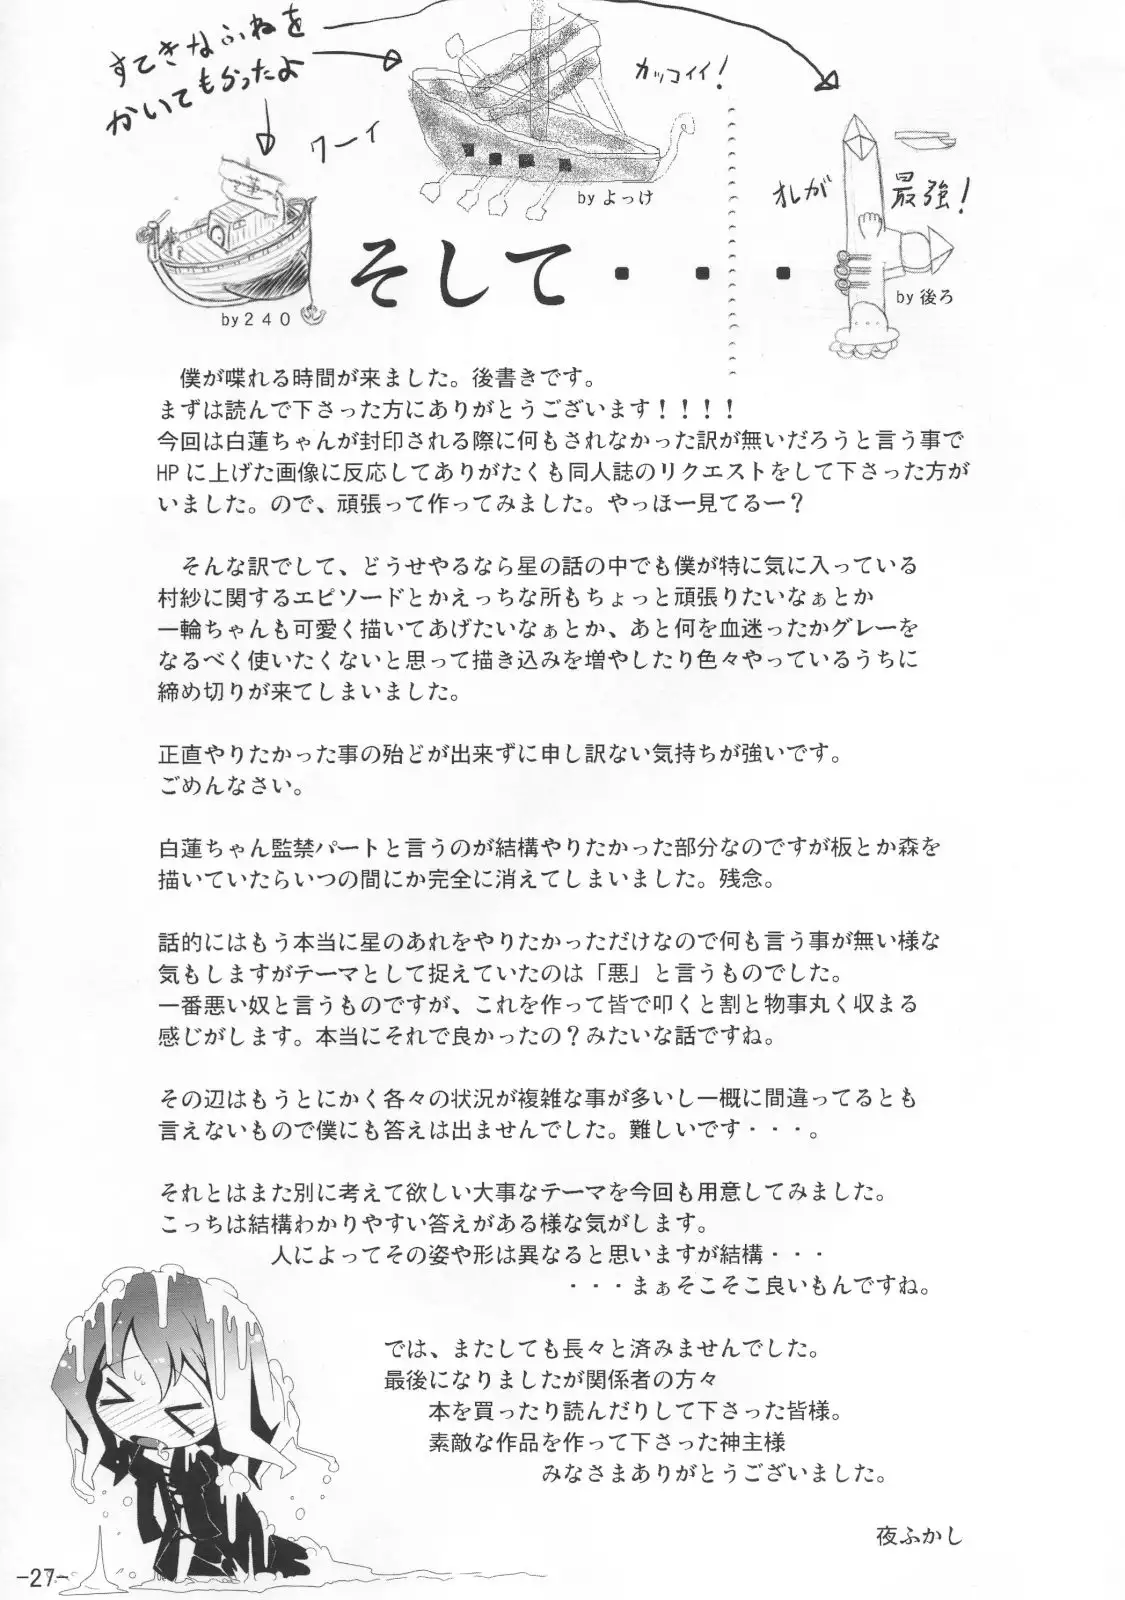 すてきなふねを
かいてもらったよ
ワーイ
カッコイイ!
オレが
最強!
by よっけ
by 後ろ
by 240
そして・・・
僕が喋れる時間が来ました。後書きです。
まずは読んで下さった方にありがとうございます!!!!
今回は白蓮ちゃんが封印される際に何もされなかった訳が無いだろうと言う事で
HPに上げた画像に反応してありがたくも同人誌のリクエストをして下さった方が
いました。ので、頑張って作ってみました。やっほー見てるー?
そんな訳でして、どうせやるなら星の話の中でも僕が特に気に入っている
村紗に関するエピソードとかえっちな所もちょっと頑張りたいなぁとか
一輪ちゃんも可愛く描いてあげたいなぁとか、あと何を血迷ったかグレーを
なるべく使いたくないと思って描き込みを増やしたり色々やっているうちに
締め切りが来てしまいました。
正直やりたかった事の殆どが出来ずに申し訳ない気持ちが強いです。
ごめんなさい。
白蓮ちゃん監禁パートと言うのが結構やりたかった部分なのですが板とか森を
描いていたらいつの間にか完全に消えてしまいました。残念。
話的にはもう本当に星のあれをやりたかっただけなので何も言う事が無い様な
気もしますがテーマとして捉えていたのは「悪」と言うものでした。
一番悪い奴と言うものですが、これを作って皆で叩くと割と物事丸く収まる
感じがします。本当にそれで良かったの?みたいな話ですね。
その辺はもうとにかく各々の状況が複雑な事が多いし一概に間違ってるとも
言えないもので僕にも答えは出ませんでした。難しいです・・・。
それとはまた別に考えて欲しい大事なテーマを今回も用意してみました。
こっちは結構わかりやすい答えがある様な気がします。
人によってその姿や形は異なると思いますが結構・・・
・・・まぁそこそこ良いもんですね。
では、またしても長々と済みませんでした。
最後になりましたが関係者の方々
本を買ったり読んだりして下さった皆様。
素敵な作品を作って下さった神主様
みなさまありがとうございました。
夜ふかし
-27-